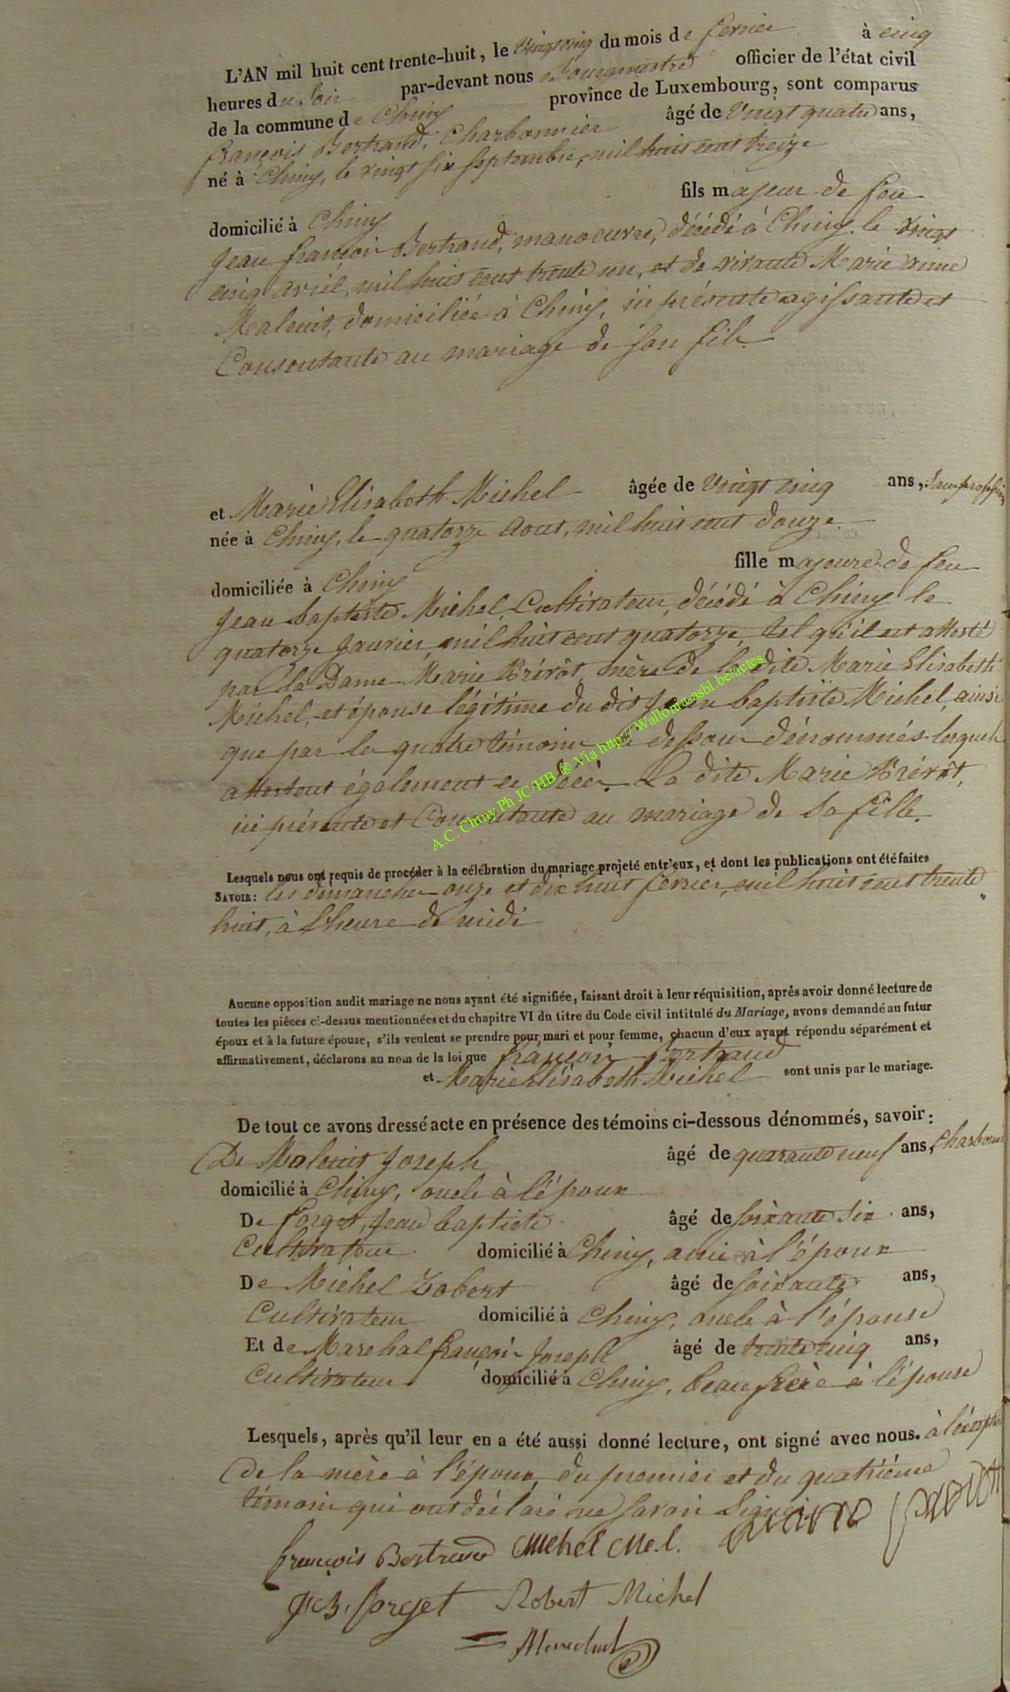 L'AN mil huit cent trente-huit, le vingt cinq du mois de fevrier à cinq
heures du soir par-devant nous Bourgmestre officier de l'état civil
de la commune de Chiny province de Luxembourg, sont comparus
françois Bertrand, Charbonnier âgé de vingt quatre ans,
né à Chiny, le vingt six septembre, mil huit cent treize
domicilié à Chiny fils majeur de feu
Jean françois Bertrand, manoeuvre, décédé à Chiny, le vingt
cinq avril, mil huit cent trente un, et de vivante Marie anne
Maleuit, domiciliée à Chiny, ici présente agissante et
Consentante au mariage de son fils
et Marie Elisabeth Michel âgée de vingt cinq ans, Sans profession
née à Chiny, le quatorze Aout, mil huit cent douze
domiciliée à Chiny fille majeure de feu
Jean baptiste Michel, Cultivateur, décédé à Chiny le
quatorze Janvier, mil huit cent quatorze tel qu'il est attesté
par la Dame Marie Prévôt, mère de la dite Marie Elisabeth
Michel, et épouse légitime du dit Jean baptiste Michel, ainsi
que par les quatre témoins ci dessous dénommés lesquels
attestent également ce décè. La dite Marie Prévôt,
ici présente et Consentante au mariage de sa fille.
A.C. Chiny Ph JC/HB ® Via http:// Wallonia-asbl.be/actes
Lesquels nous ont requis de procéder à la célébration du mariage projeté entr'eux, et dont les publications ont été faites
SAVOIR: les dimanches onze et dix huit fevrier, mil huit cent trente
huit, à l'heure de midi
Aucune opposition audit mariage ne nous ayant été signifiée, faisant droit à leur réquisition, après avoir donné lecture de
toutes les pièces ci-dessus mentionnées et du chapitre VI du titre du Code civil intitulé du Mariage, avons demandé au futur
époux et à la future épouse, s'ils veulent se prendre pour mari et pour femme, chacun d'eux ayant répondu séparément et
affirmativement, déclarons au nom de la loi que françois Bertrand
et Marie Elisabeth Michel sont unis par le mariage.
De tout ce avons dressé acte en présence des témoins ci-dessous dénommés, savoir:
De Maleuit Joseph âgé de quarante neuf ans, Charbonnier
domicilié à Chiny, oncle à l'époux
De forget, Jean baptiste âgé de soixante six ans,
Cultivateur domicilié à Chiny, ami à l'époux
De Michel Robert âgé de soixante ans,
Cultivateur domicilié à Chiny, oncle à l'épouse
Et de Marechal françois Joseph âgé de trente cinq ans,
Cultivateur domicilié à Chiny, beau frère à l'épouse
Lesquels, après qu'il leur en a été aussi donné lecture, ont signé avec nous. à l'éxception
de la mère à l'époux, du premier et du quatrième
témoin qui ont déclaré ne savoir Signer
françois Bertrand Michel M.e.l.
J.B. forget Robert Michel
Marechal